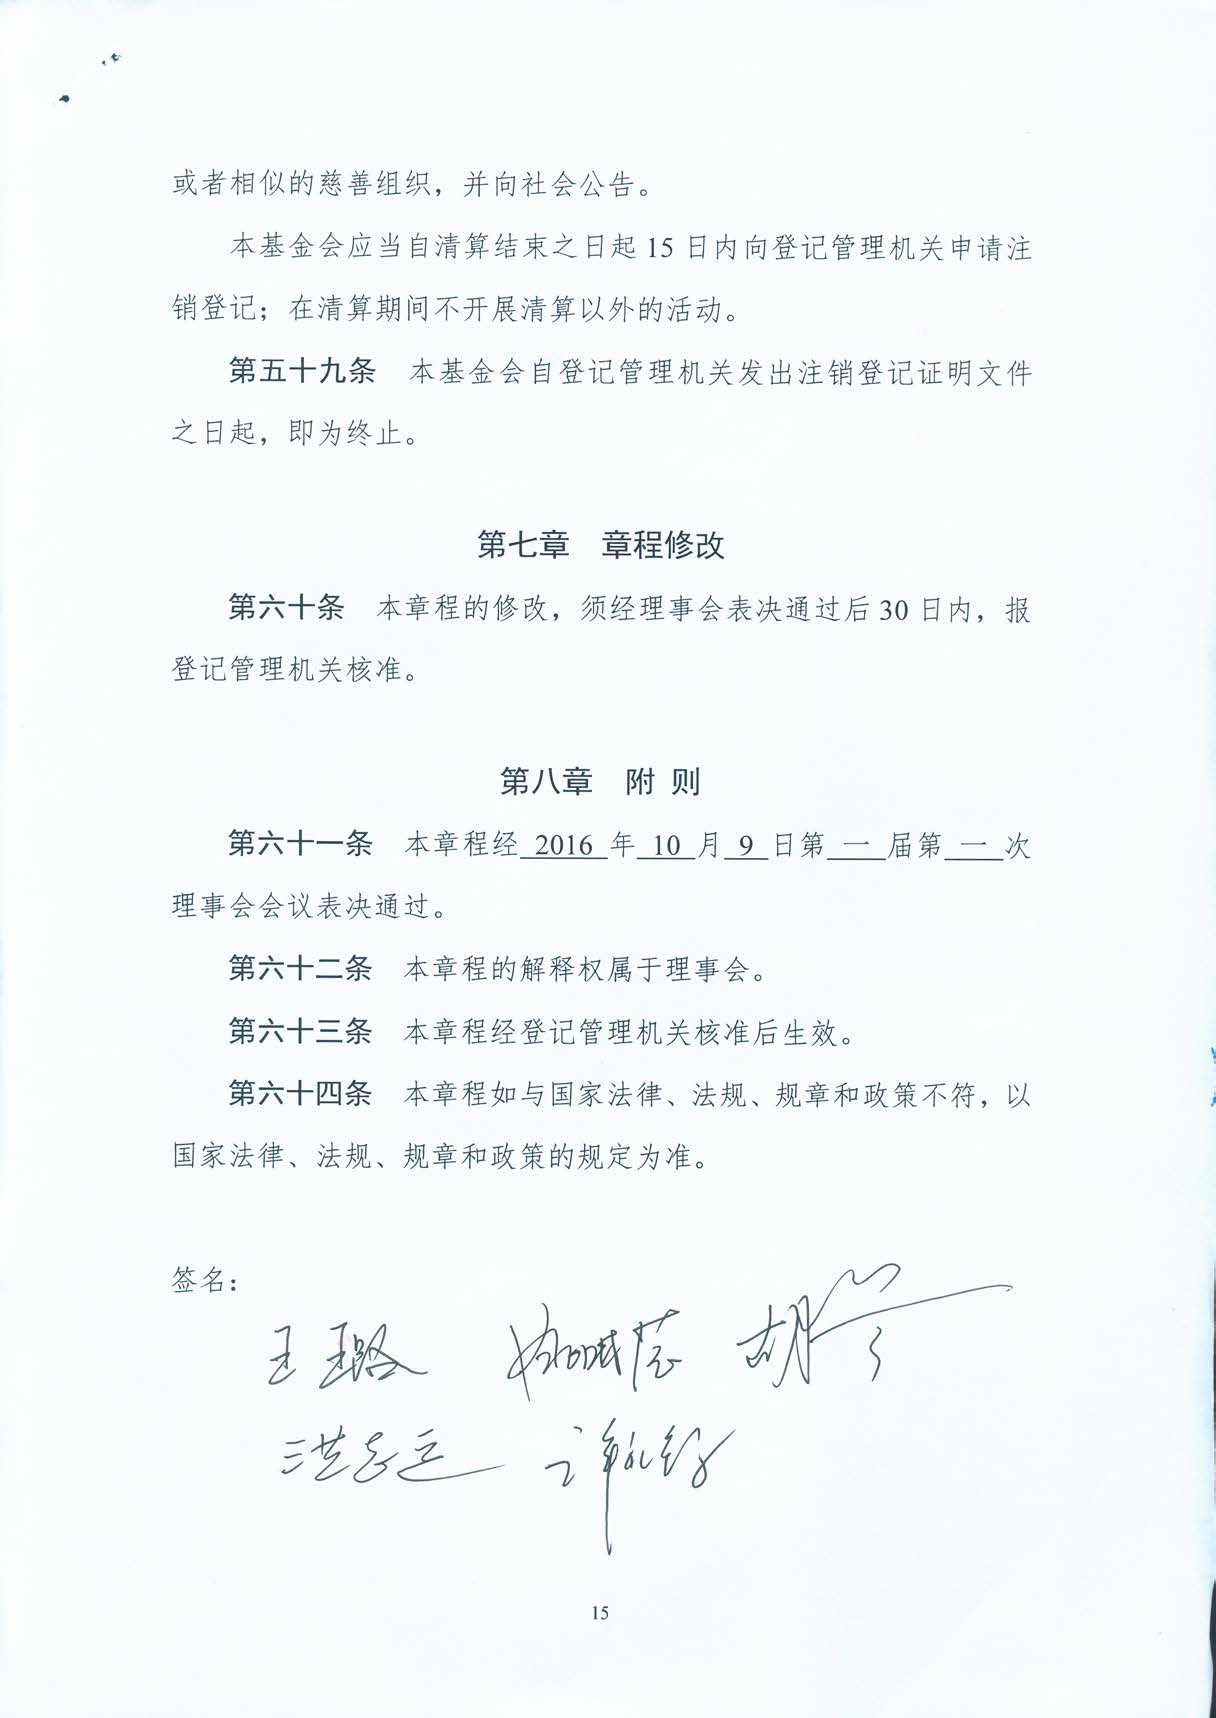 或者相似的慈善组织，并向社会公告。
本基金会应当自清算结束之日起 15 日内向登记管理机关申请注
销登记；在清算期间不开展清算以外的活动。
第五十九条 本基金会自登记管理机关发出注销登记证明文件
之日起，即为终止。
第七章 章程修改
第六十条 本章程的修改，须经理事会表决通过后 30 日内，报
登记管理机关核准。
第八章 附 则
第六十一条 本章程经 2016 年 10 月 9 日第 一 届第 一 次
理事会会议表决通过。
第六十二条 本章程的解释权属于理事会。
第六十三条 本章程经登记管理机关核准后生效。
第六十四条 本章程如与国家法律、法规、规章和政策不符，以
国家法律、法规、规章和政策的规定为准。
签名：
王璐 胡
洪志远
15